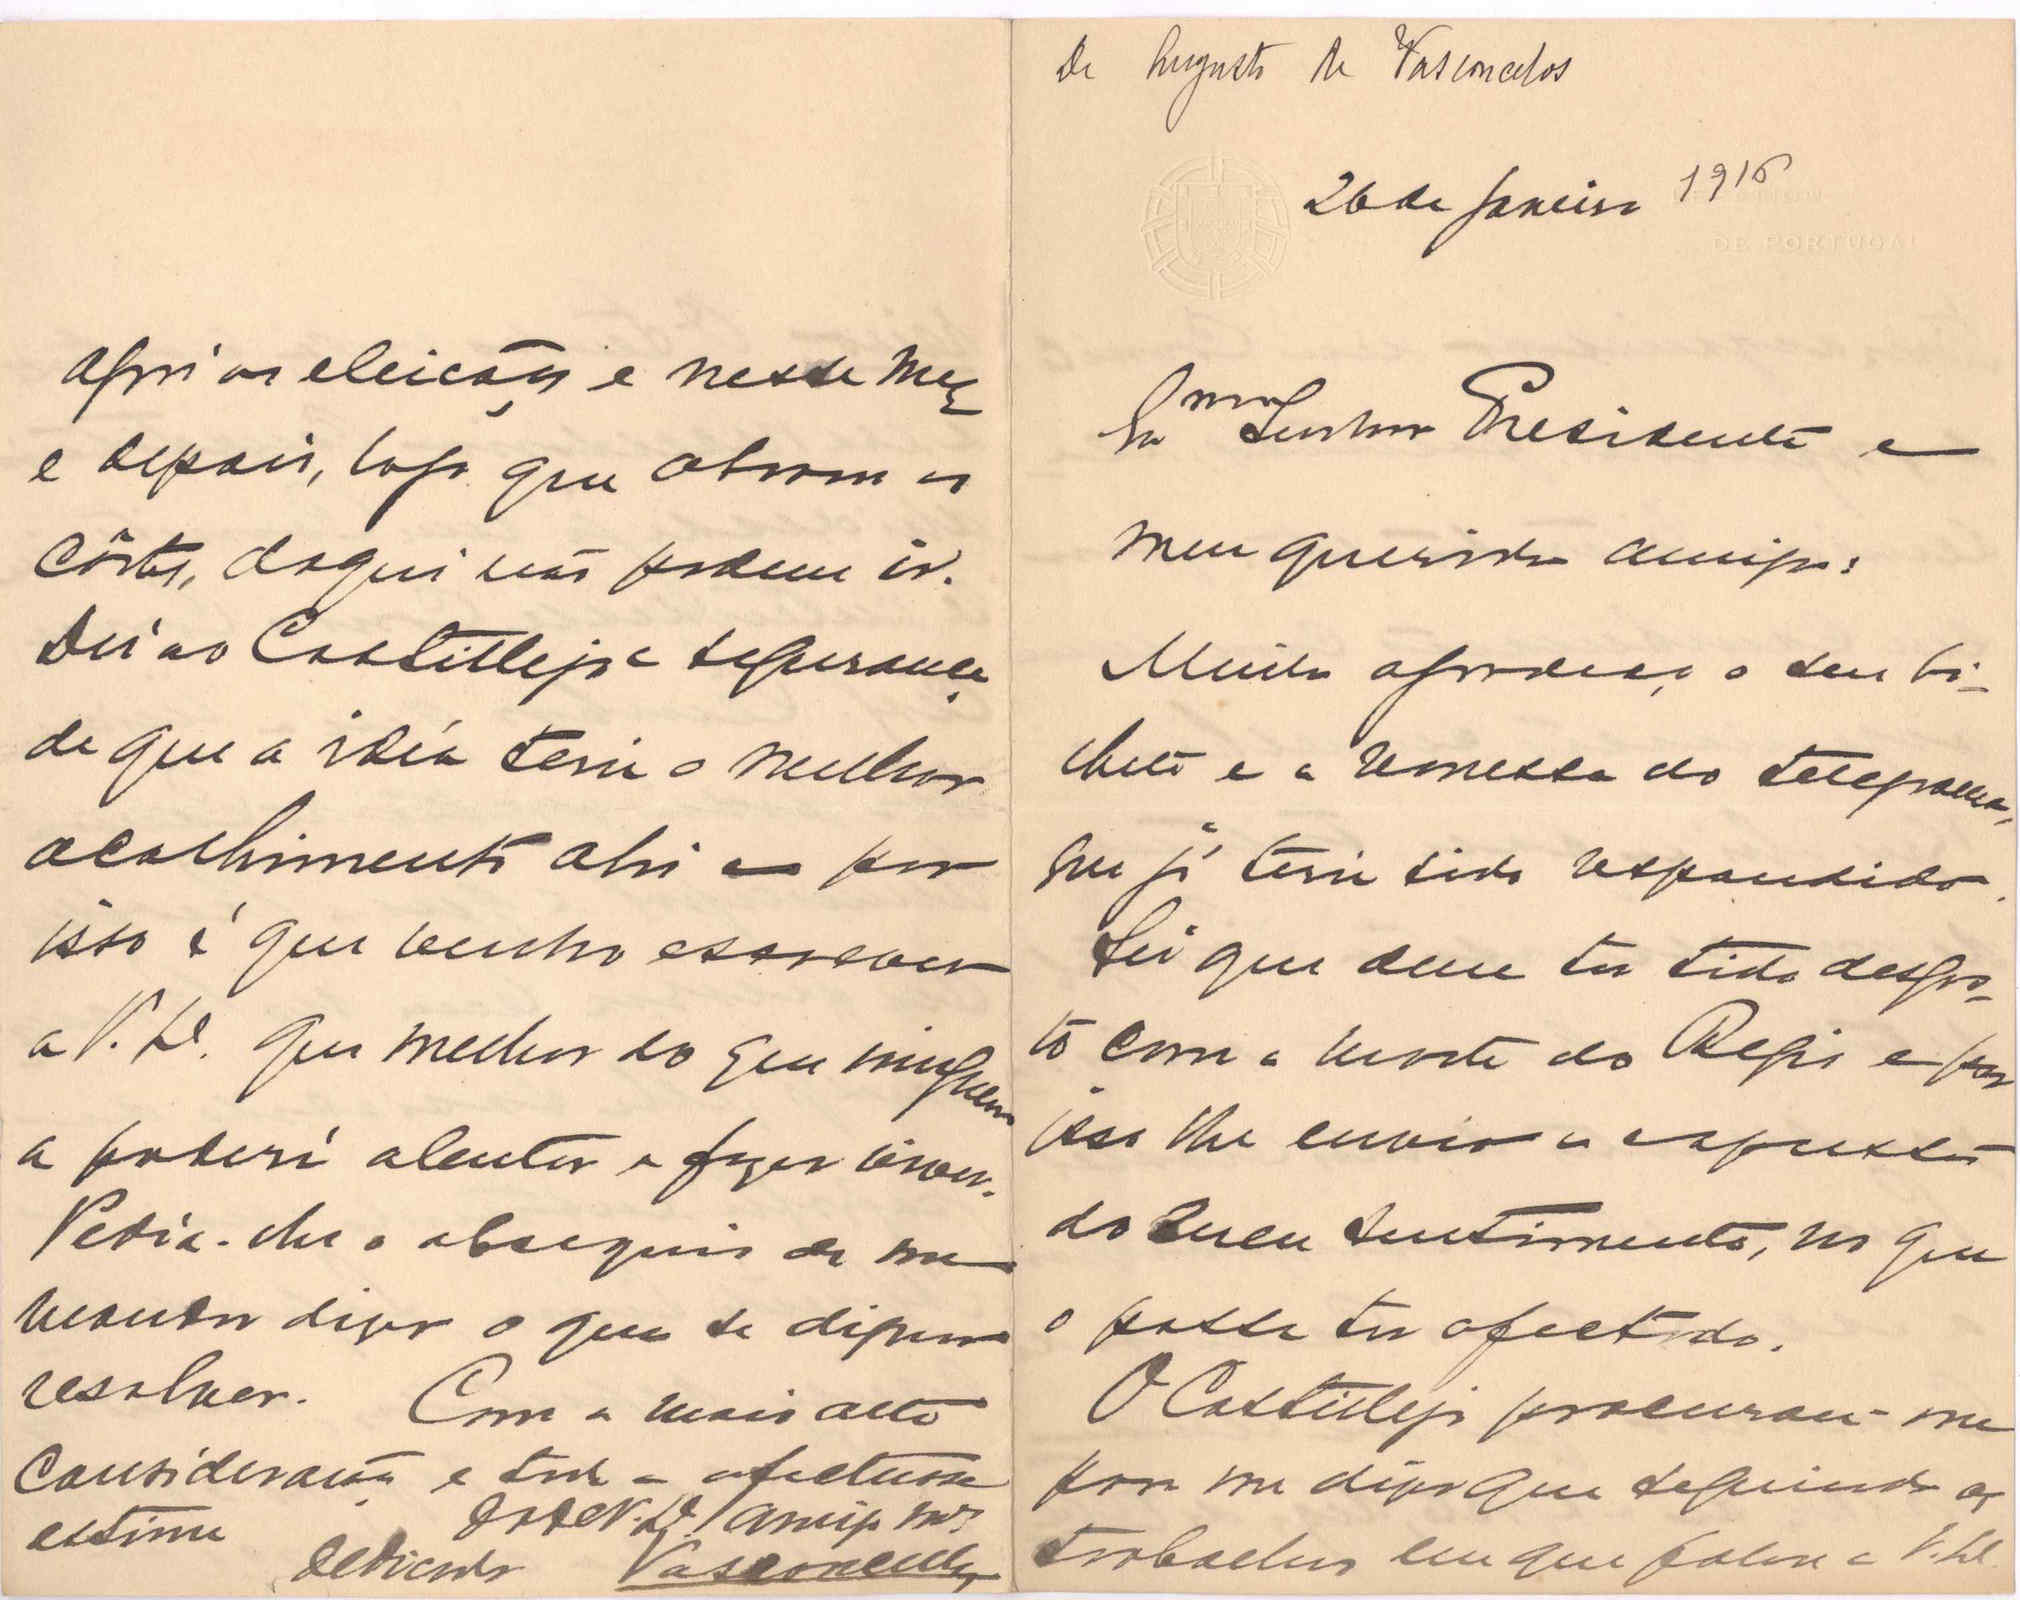 De Augusto de Vasconcelos
26 de Janeiro 1916
DE PORTUGAL
Exmo Senhor Presidente e
meu querido amigo:
Muito agradeço o seu bi-
lhete e a remessa do telegrama,
que já teria sido respondido.
Sei que deve ter tido desgos-
to com a morte do Regis e por
isso lhe envio a expressão
do meu sentimento, no que
o possa ter afectado.
O Castillejo procurou-me
para me dizer que seguindo os
trabalhos em que falou a V. Exª
agora as eleições e nesse mez
e depois, logo que abram as
côrtes, daqui não podem ir.
Dei ao Castillejo a segurança
de que a idéa teria o melhor
acolhimento ahi e por
isso é que venho escrever
a V. Exª. que melhor do que ninguem
a poderá alentar e fazer viver.
Pedia-lhe o obsequio de me
mandar dizer o que se dignar
resolver. Com a mais alta
consideração e toda a afectuosa
estima
sou de V. Exª. amigo mto
dedicado Vasconcellos